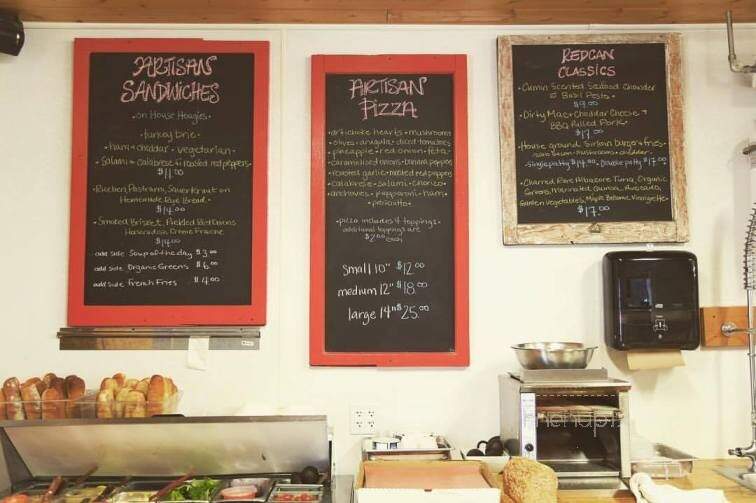 ARTISAN
SANDWICHES
• on House Hoagies •
• turkey brie •
• ham & cheddar • vegetarian •
• Salami & Calabrese w/ roasted red peppers •
$11.00
• Reuben Pastrami, Sauerkraut on
Homemade Rye Bread •
$14.00
• Smoked Brisket, Pickled Red Onions
Horseradish Creme Fraiche
$14.00
add side Soup of the day $3.00
add side Organic Greens $6.00
add side French Fries $4.00
ARTISAN
PIZZA
• artichoke hearts • mushrooms
• olives • arugula • diced tomatoes
• pineapple • red onion • feta •
• caramelized onions • banana peppers
• roasted garlic • roasted red peppers
• calabrese • salami • chorizo •
• anchovies • pepperoni • ham •
• prosciutto •
• pizza includes 4 toppings •
additional toppings are
$2.00 each
small 10" $12.00
medium 12" $18.00
large 14" $25.00
REDCAN
CLASSICS
• Cumin Scented Seafood Chowder
Basil Pesto •
$9.00
• Dirty Mac • Cheddar Cheese +
BBQ Pulled Pork •
$17.00
• House ground Sirloin burger & fries •
bacon • mushrooms • cheddar •
Single patty $14.00 Double patty $17.00
• Charred Rare Albacore Tuna, Organic
Greens, Marinated Quinoa, Avocado,
Garden Vegetables, Maple Balsamic Vinaigrette •
$17.00